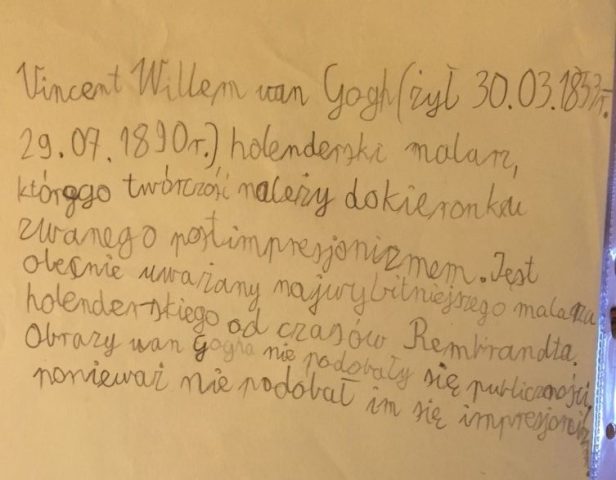 Vincent Willem van Gogh (żył 30.03.1853r.
29.07.1890r.) holenderski malarz,
którego twórczość należy do kieronku
zwanego postimpresjonizmem. Jęst
olecnie uważany najwybitniejszego malarza
holenderskiego od czasów Rembrandta.
Obrazy van Gogha nie podobały się publiczności,
poniewaź nie podobał im się impresjonizm